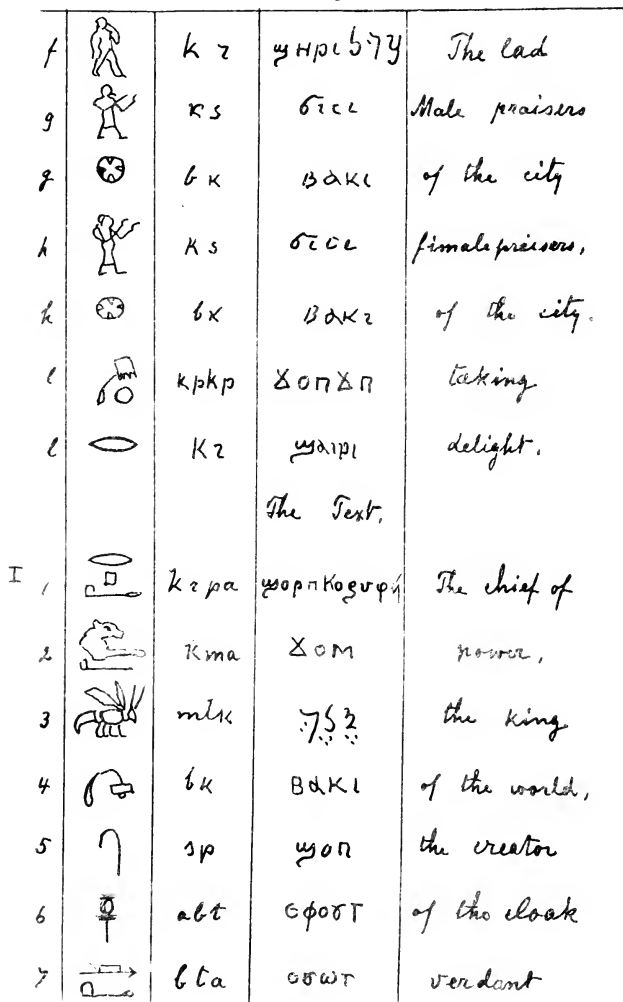 f k r ϣⲏⲣⲓ The lad
g ks ϭⲓⲥⲓ Male praisers
g bk ⲃⲁⲕⲓ of the city
h ks ϭⲓⲥⲓ female praisers,
h bk ⲃⲁⲕⲓ of the city.
l kpkp ϫⲟⲡϫⲡ taking
l kr ϣⲁⲓⲣⲓ delight.
The Text.
I 1 krpa The chief of
2 kma ϫⲟⲙ power,
3 mlk the king
4 bk ⲃⲁⲕⲓ of the world,
5 sp ϣⲟⲡ the creator
6 abt ⲉⲫⲟⲩⲧ of the cloak
7 bta ⲟⲩⲱⲧ verdant